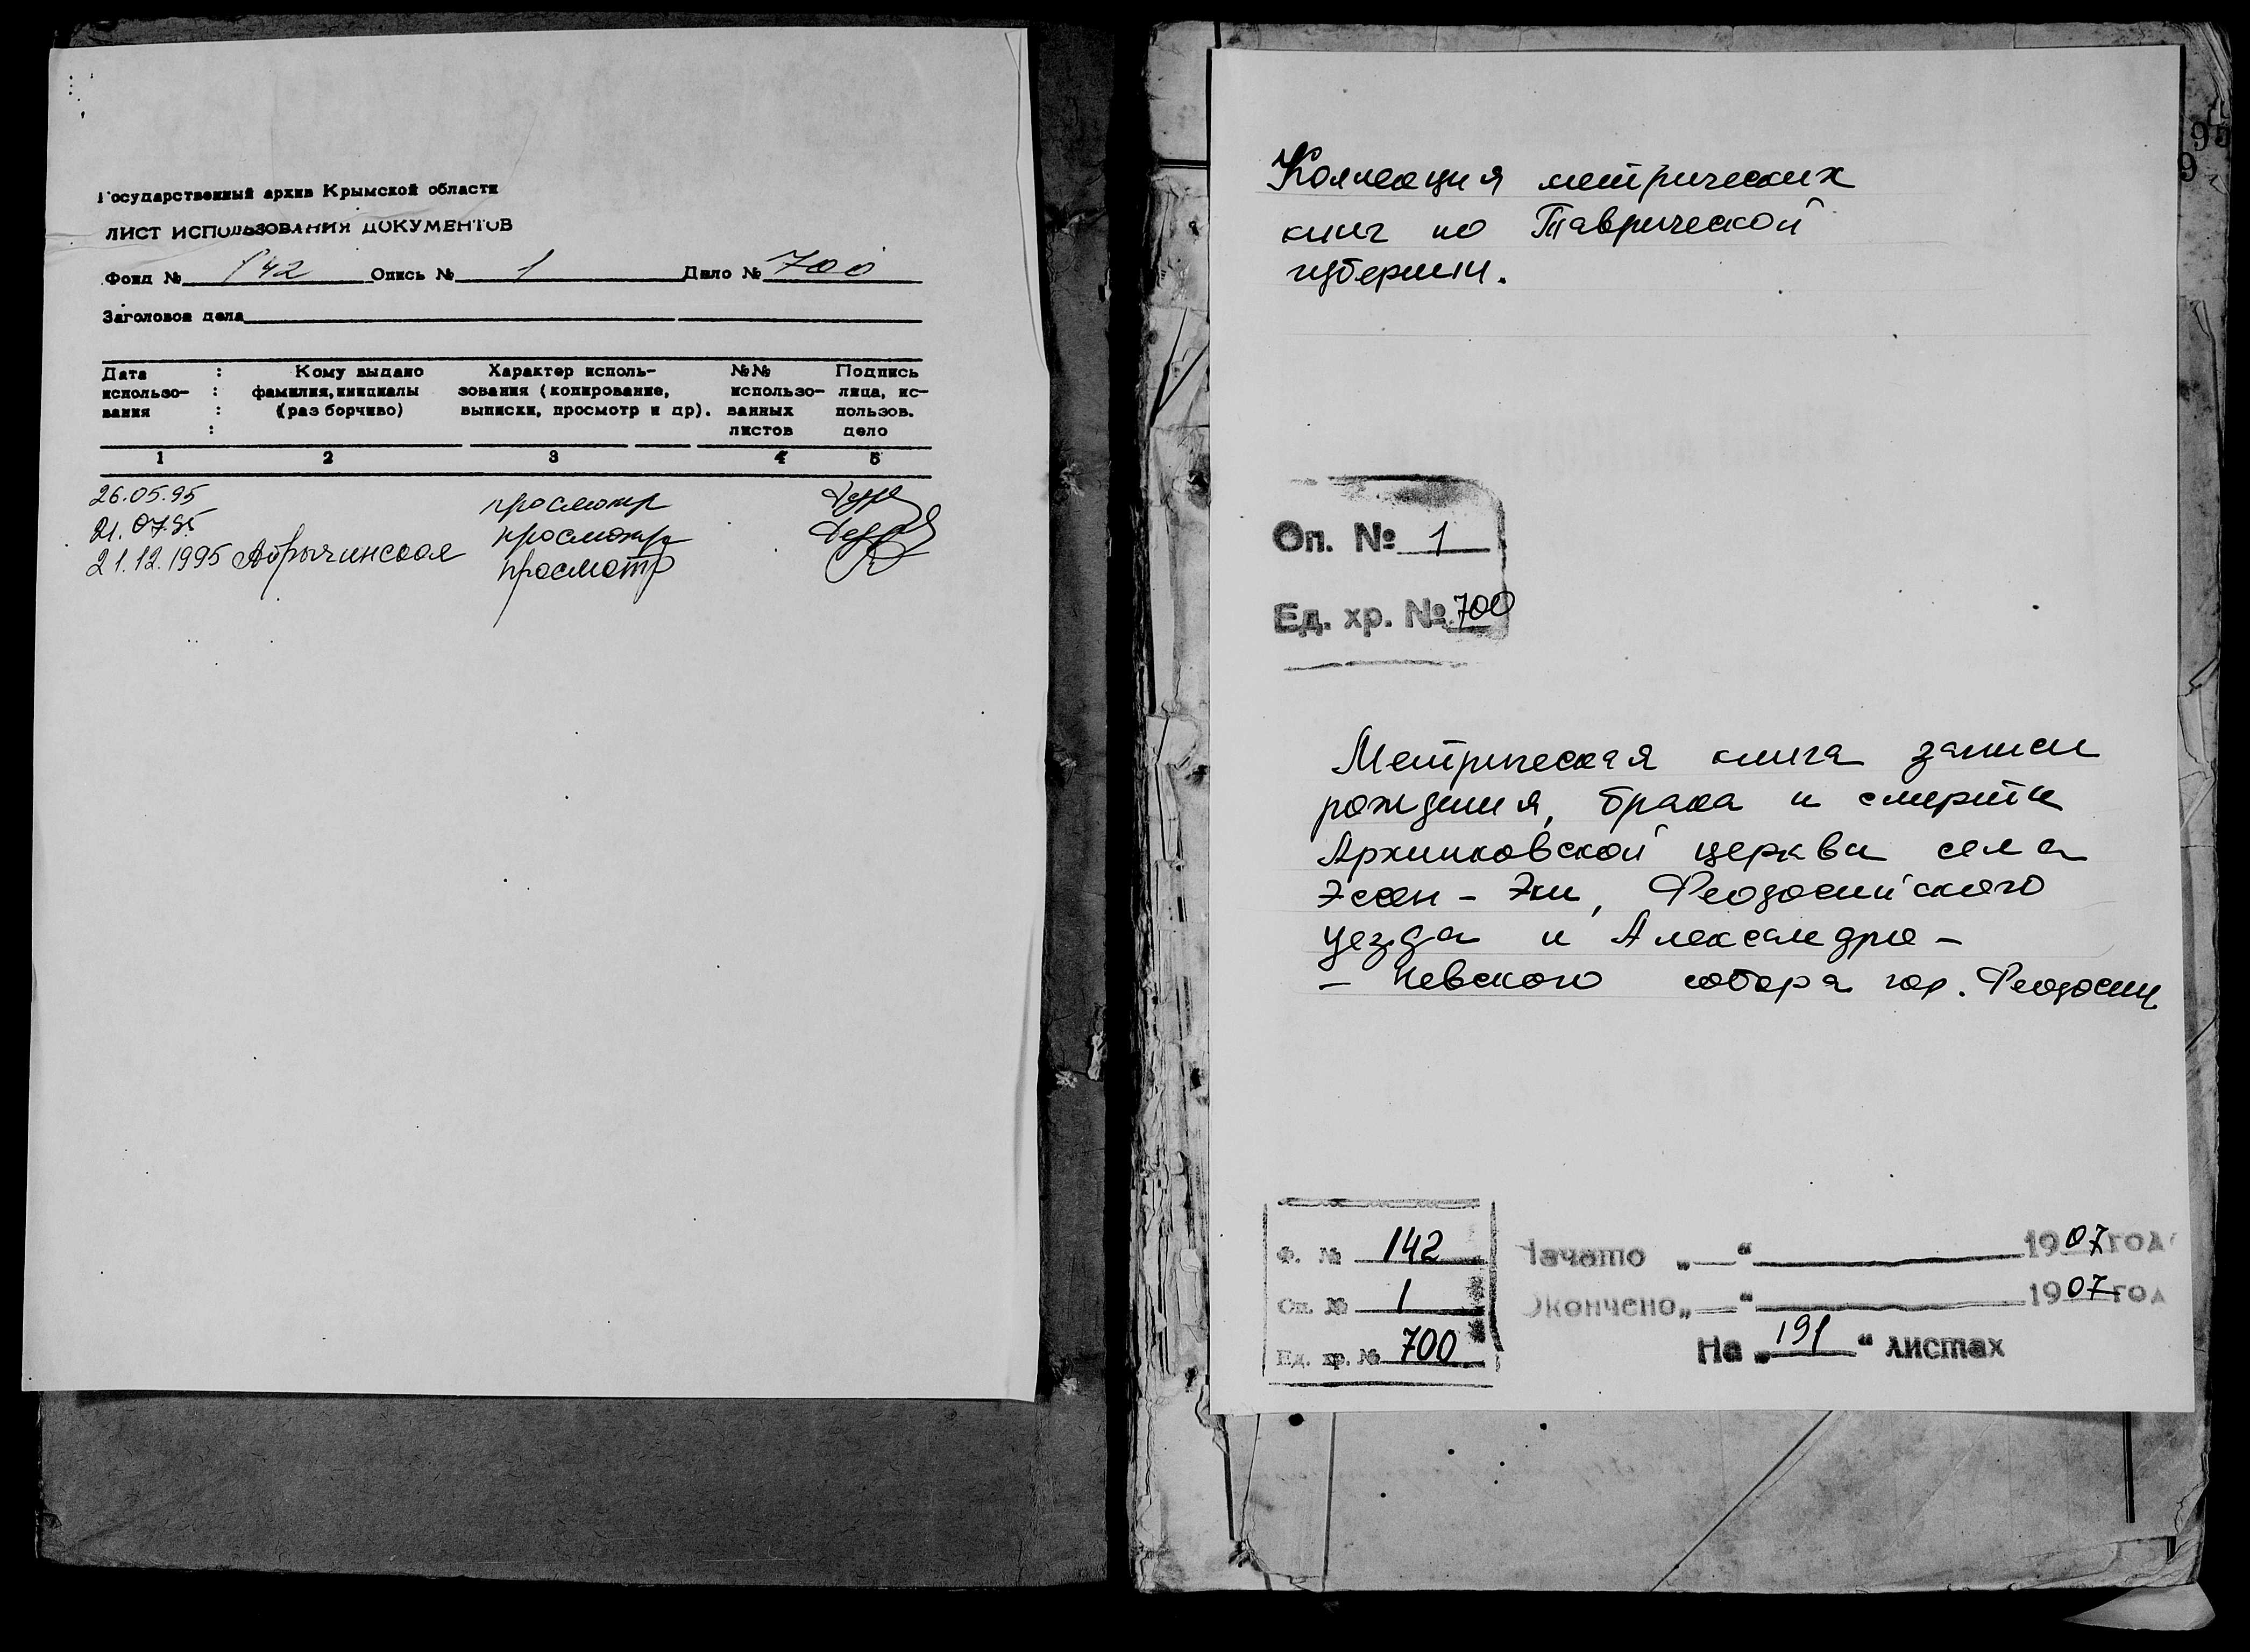 Государственный архив Крымской области
ЛИСТ ИСПОЛЬЗОВАНИЯ ДОКУМЕНТОВ
Фонд № 142 Опись № 1 Дело № 700
Заголовок дела
Дата : Кому выдано Характер исполь- №№ Подпись
использо- : фамилия, инициалы зования (копирование, использо- лица, ис-
вания : (разборчиво) выписки, просмотр и др). ванных пользов.
: листов дело
1 2 3 4 5
26.05.95 просмотр
21.07.95 просмотр
21.12.1995 просмотр
Коллекция метрических
книг по Таврической
губернии.
Оп. № 1
Ед. хр. № 700
Метрическая книга записи
рождения, брака и смерти
церкви села
Феодосийского
уезда и Александро-
- Невского собора гор. Феодосии
Ф. № 142
Оп. № 1
Ед. хр. № 700
Начато „ “ 1907 год
Окончено „ “ 1907 год
На „191“ листах